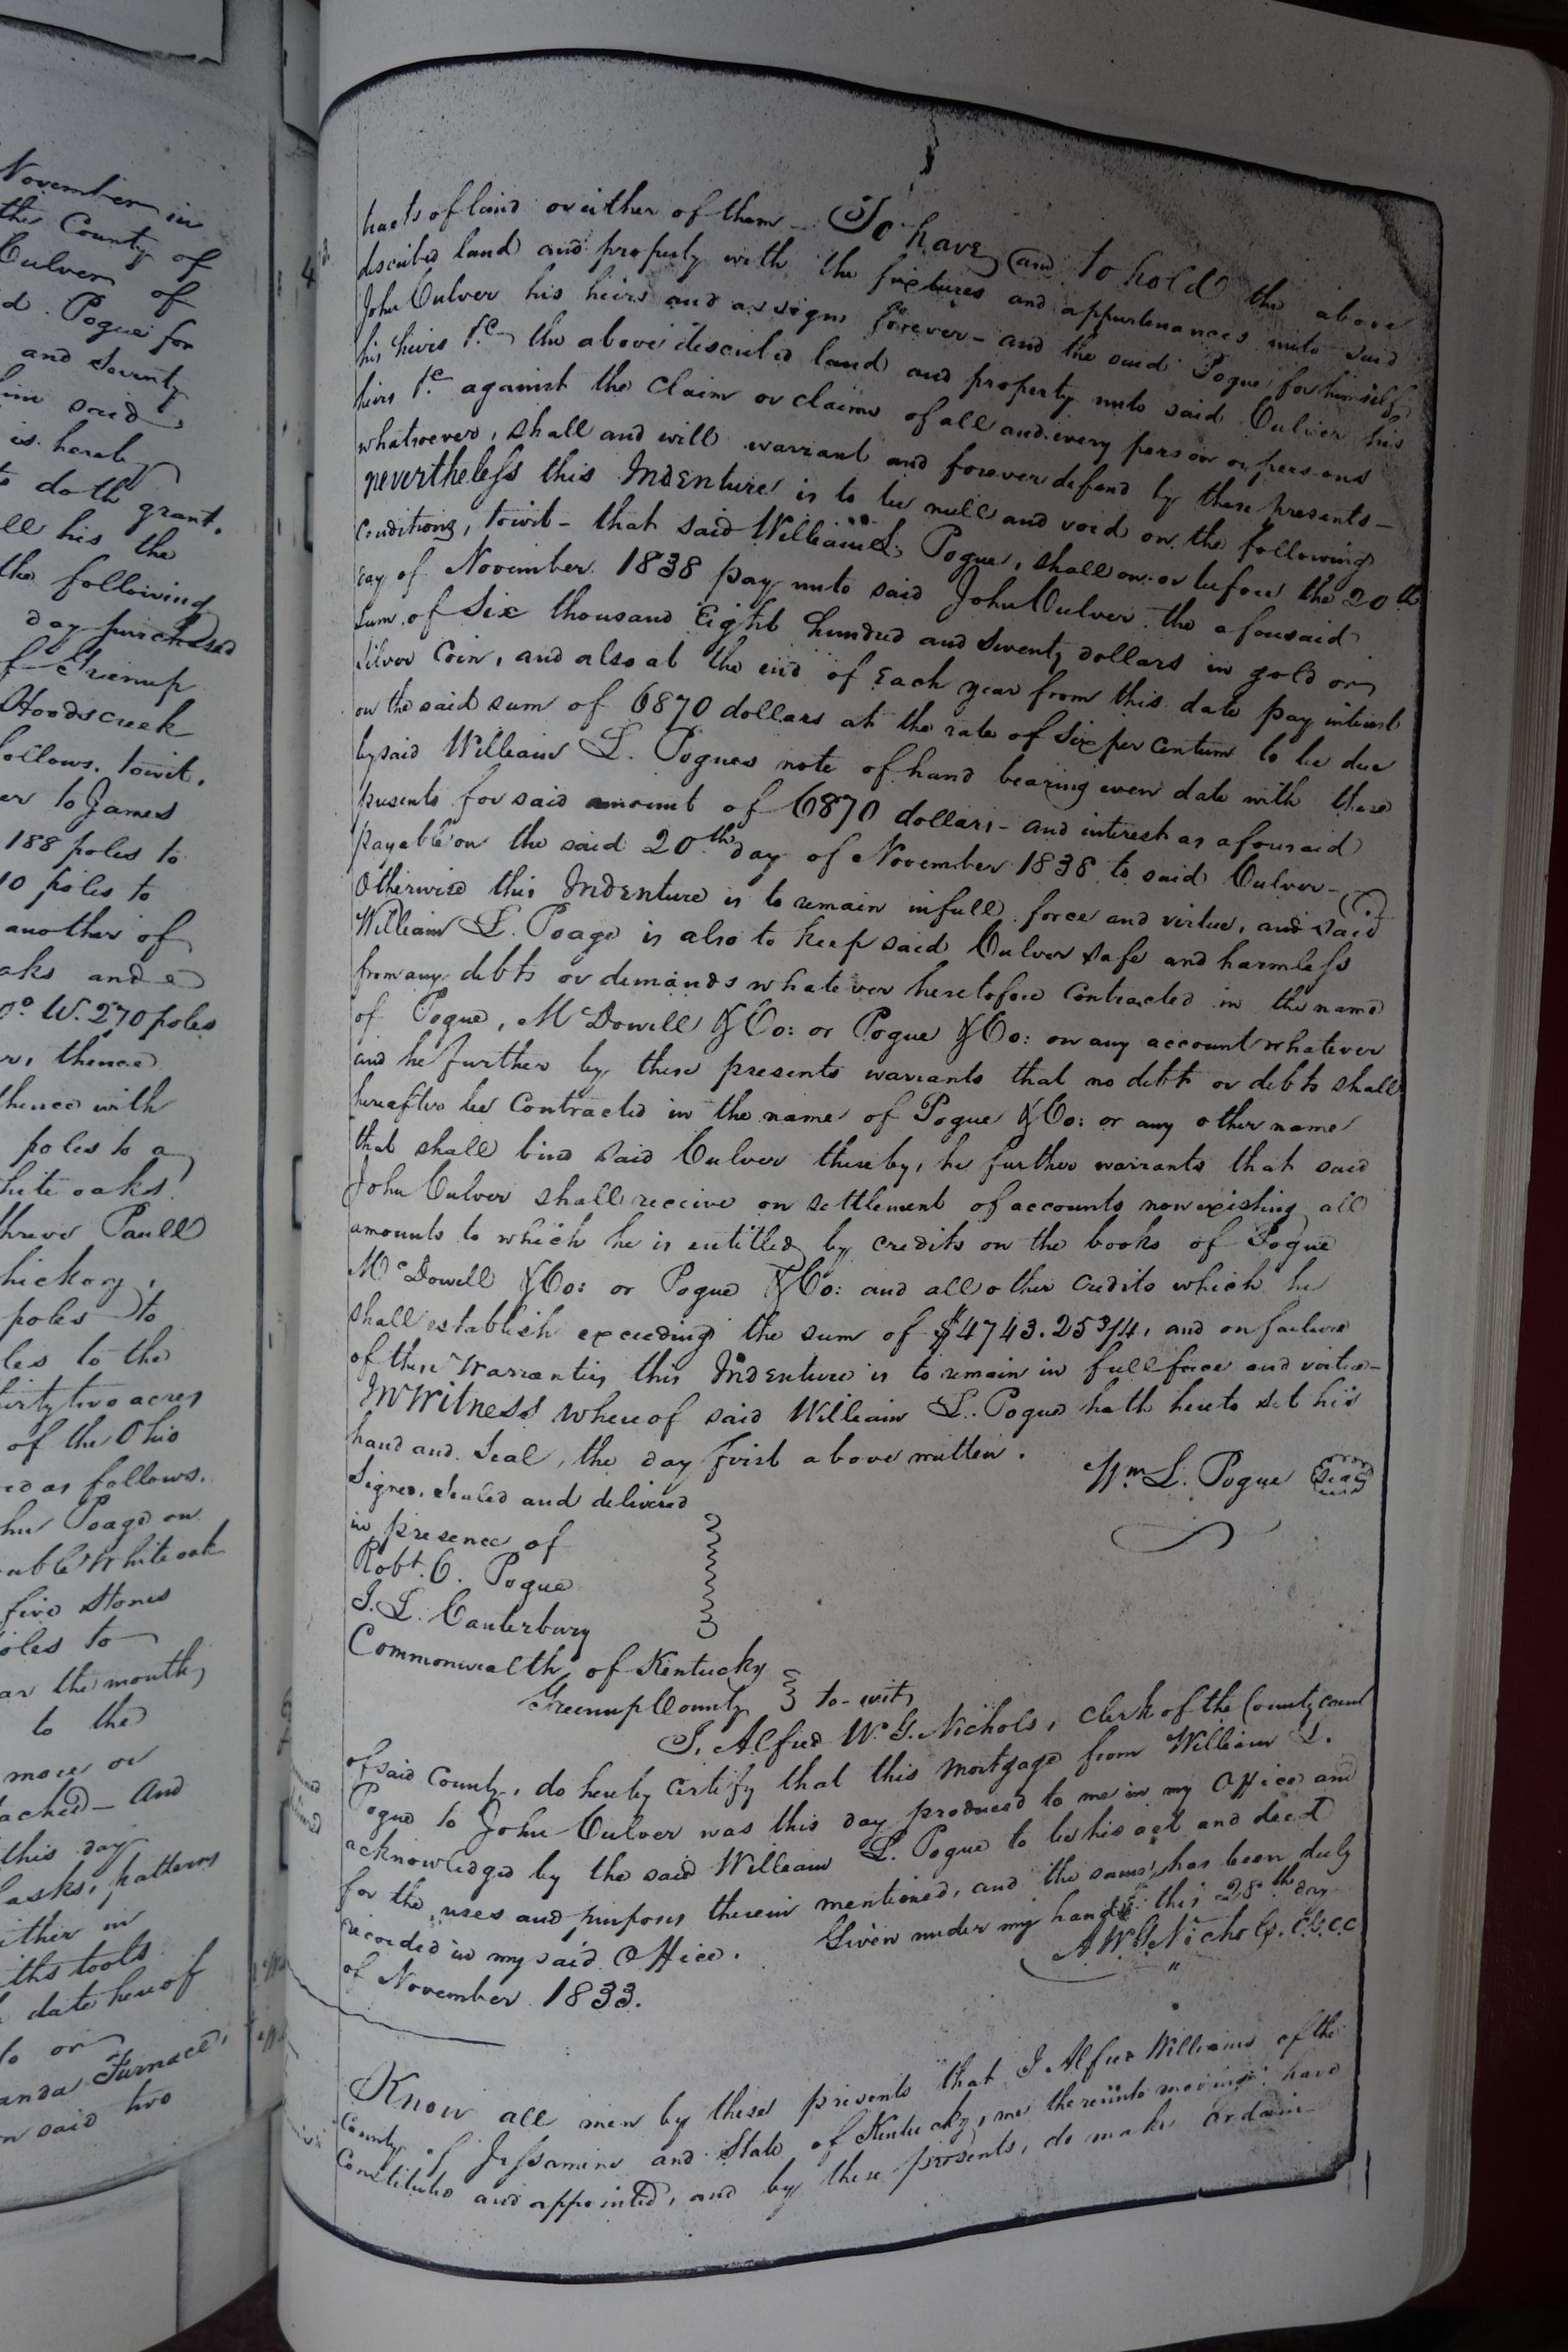 November in
the County of
Culver of
d. Pogue for
and Seventy
him said
is hereby
to doth grant.
ll his the
the following
day purchased
of Greenup
Hoodscreek
follows. towit.
er to James
188 poles to
10 poles to
another of
oaks and a
0° W. 270 poles
r, thence
thence with
poles to a
hite oaks
Paull
hickory,
poles to
les to the
irty two acres
of the Ohio
ed as follows.
hn Poage on
uble White oak
five Stones
oles to
ar the mouth
to the
more or
ached - And
this day
lasks, patterns
either in
iths tools
date hereof
to or
anda Furnace,
n said two
tracts of land or either of them - To have and to hold the above
described land and property with the fixtures and appurtenances unto said
John Culver his heirs and assigns forever - and the said Pogue for himself
his heirs &c the above described land and property unto said Culver his
heirs &c against the Claim or claims of all and every person or persons
whatsoever, shall and will warrant and forever defend by these presents -
nevertheless this Indenture is to be null and void on the following
Conditions, towit - that said William L. Pogue, shall on or before the 20th
day of November 1838 pay unto said John Culver the afousaid
sum of Six thousand Eight hundred and Seventy dollars in gold or
Silver Coin, and also at the end of Each year from this date pay interest
on the said sum of 6870 dollars at the rate of Six per Centum to be due
by said William L. Pogues note of hand bearing even date with these
presents for said amount of 6870 dollars - and interest as afousaid
payable on the said 20th day of November 1838 to said Culver -
Otherwise this Indenture is to remain in full force and virtue, and said
William L. Poage is also to keep said Culver safe and harmless
from any debts or demands whatever heretofore Contracted in the name
of Pogue, McDowell & Co: or Pogue & Co: on any account whatever
and he further by these presents warrants that no debt or debts shall
hereafter be Contracted in the name of Pogue & Co: or any other name
that shall bind said Culver thereby, he further warrants that said
John Culver shall receive on settlement of accounts now existing all
amounts to which he is entitled by credits on the books of Pogue
McDowell & Co: or Pogue & Co: and all other Credits which he
shall establish exceeding the sum of $4743.25 3/4, and on failure
of these Warranties this Indenture is to remain in full force and virtue -
In Witness whereof said William L. Pogue hath hereto set his
hand and Seal, the day first above written.
Wm L. Pogue Seal
Signed, Sealed and delivered
in presence of
Robt. C. Pogue
J. L. Canterbury
Commonwealth of Kentucky
Greenup County to-wit,
I, Alfred W. G. Nichols, Clerk of the County court
of said County, do hereby Certify that this Mortgage from William L.
Pogue to John Culver was this day produced to me in my Office and
acknowledged by the said William L. Pogue to be his act and deed
for the uses and purposes therein mentioned, and the same has been duly
recorded in my said Office. Given under my hand this 28th day
of November 1833. A. W. G. Nichols. C.G.C.C
Know all men by these presents that I Alfred Williams of the
County of Jessamine and State of Kentucky, me thereunto moving have
Constituted and appointed, and by these presents, do make ordain